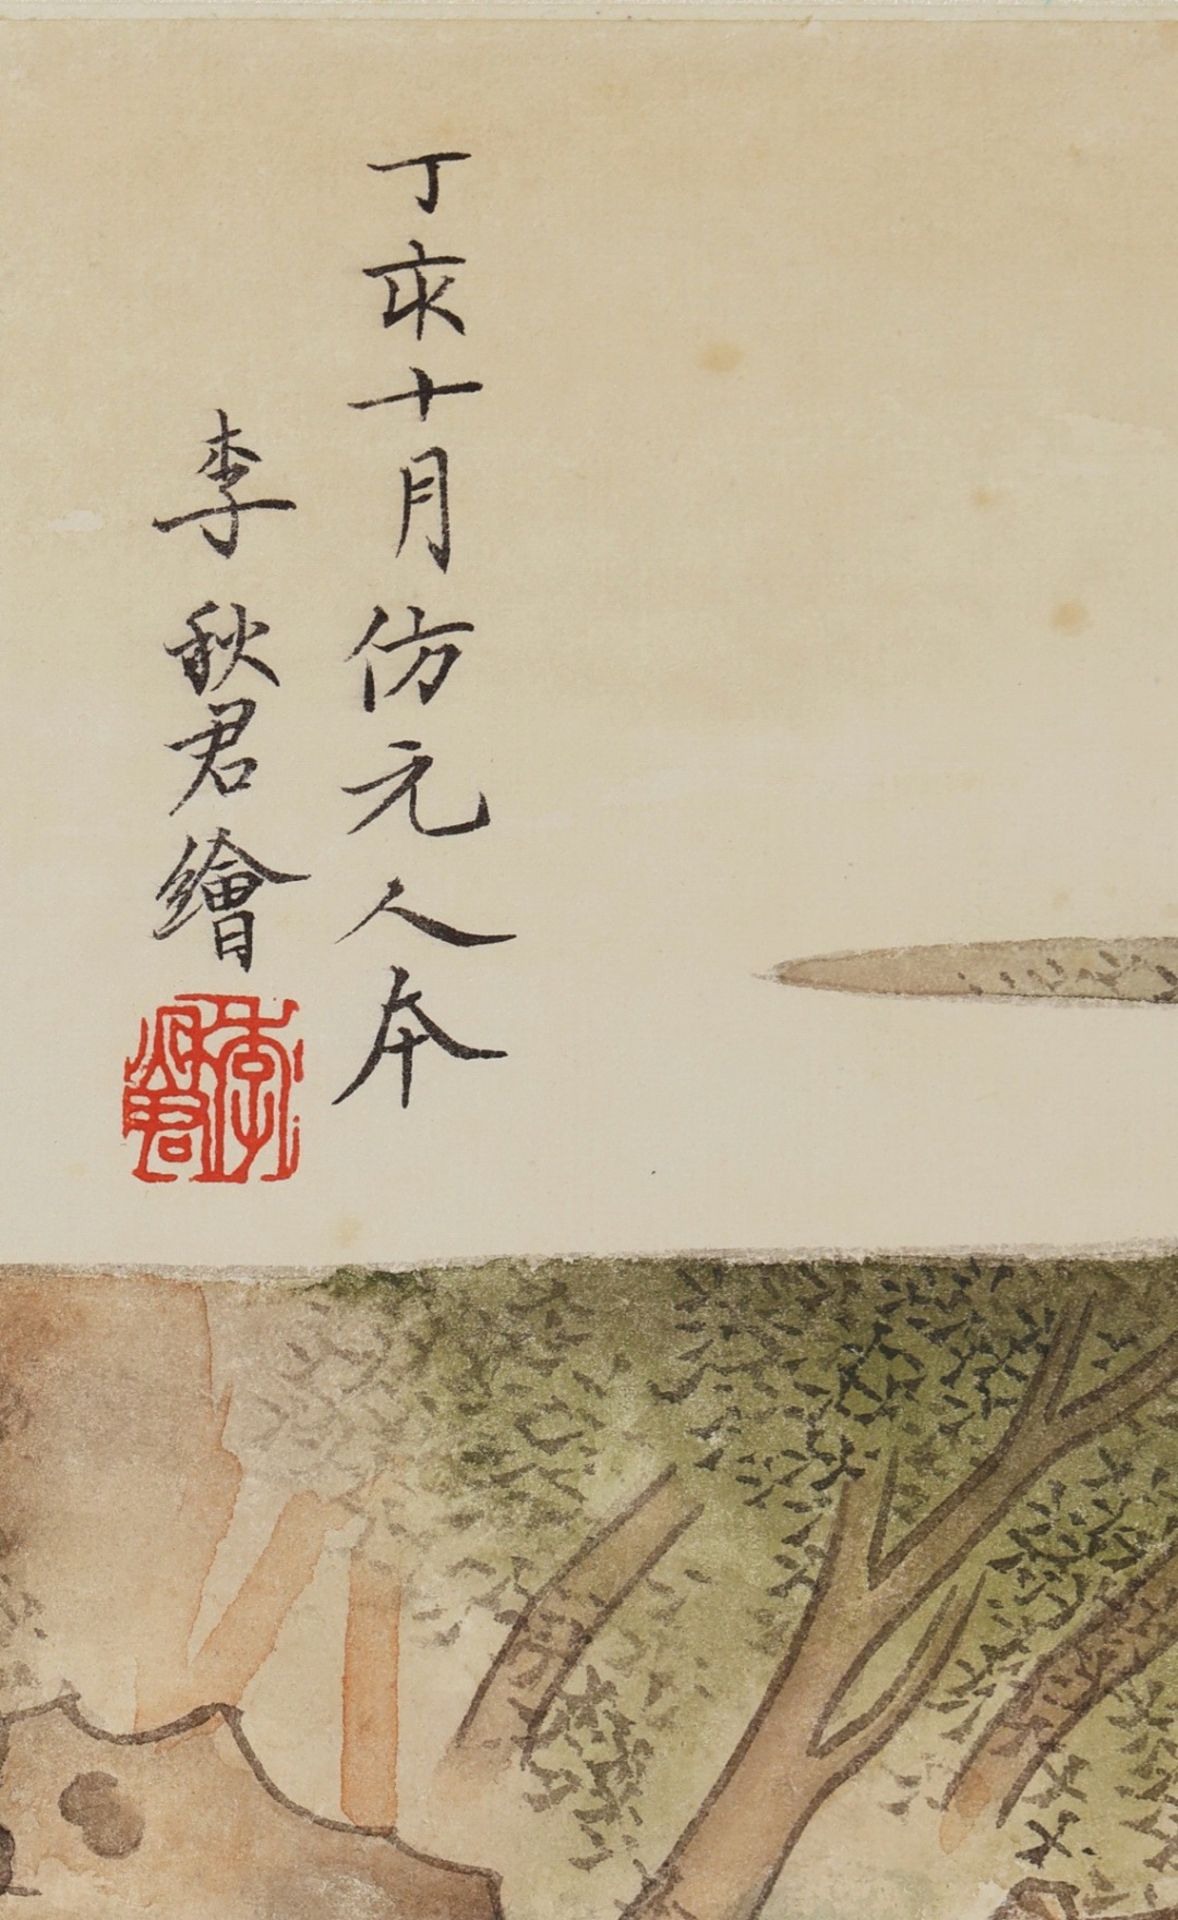 丁亥十月仿元人本
李秋君繪
李秋君